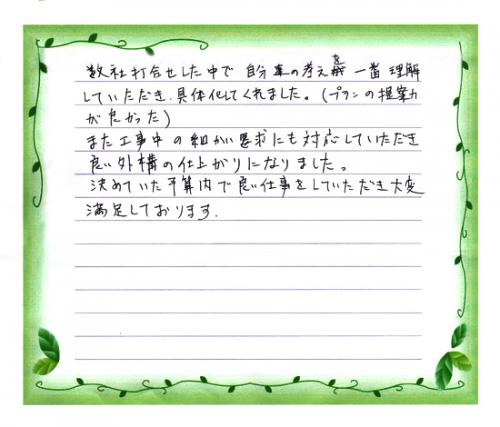 数社打合せした中で自分達の考えを一番理解
していただき、具体化してくれました。（プランの提案力
が良かった）
また工事中の細かい要求にも対応していただき
良い外構の仕上がりになりました。
決めていた予算内で良い仕事をしていただき大変
満足しております.